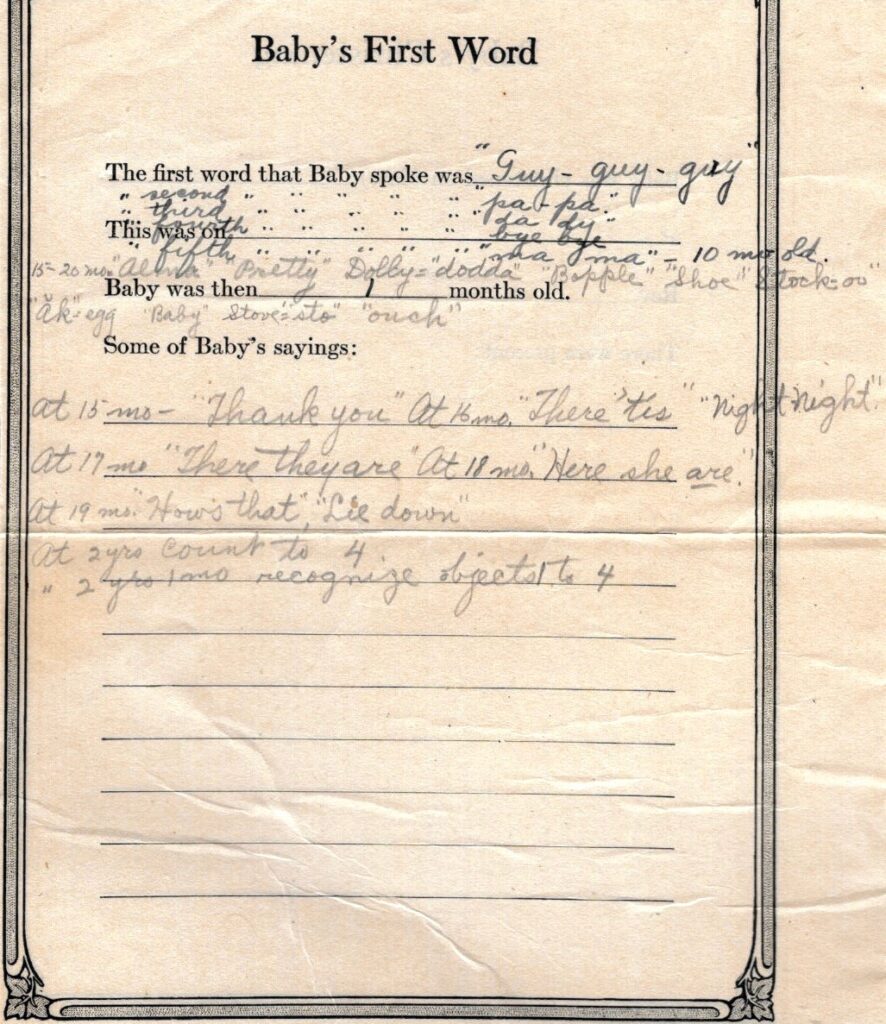 Baby's First Word
The first word that Baby spoke was "Guy - guy - guy"
" second " " " " " "pa - pa."
" third " " " " " "da - dy"
This was on fourth " " " " " bye bye
" fifth " " " " " "ma ma" - 10 mo old.
15-20 mo. "Pretty" Dolly="dodda" "Bopple" "Shoe" Stock=oo"
Baby was then 1 months old.
"Ăk"=egg "Baby" Stove="sto" "ouch"
Some of Baby's sayings:
At 15 mo- "Thank you" At 16 mo. "There 'tis" "Night Night"
At 17 mo "There they are" At 18 mo. "Here she are."
At 19 mo. "How's that", "Lie down"
At 2 yrs count to 4.
" 2 yrs 1 mo recognize objects 1 to 4